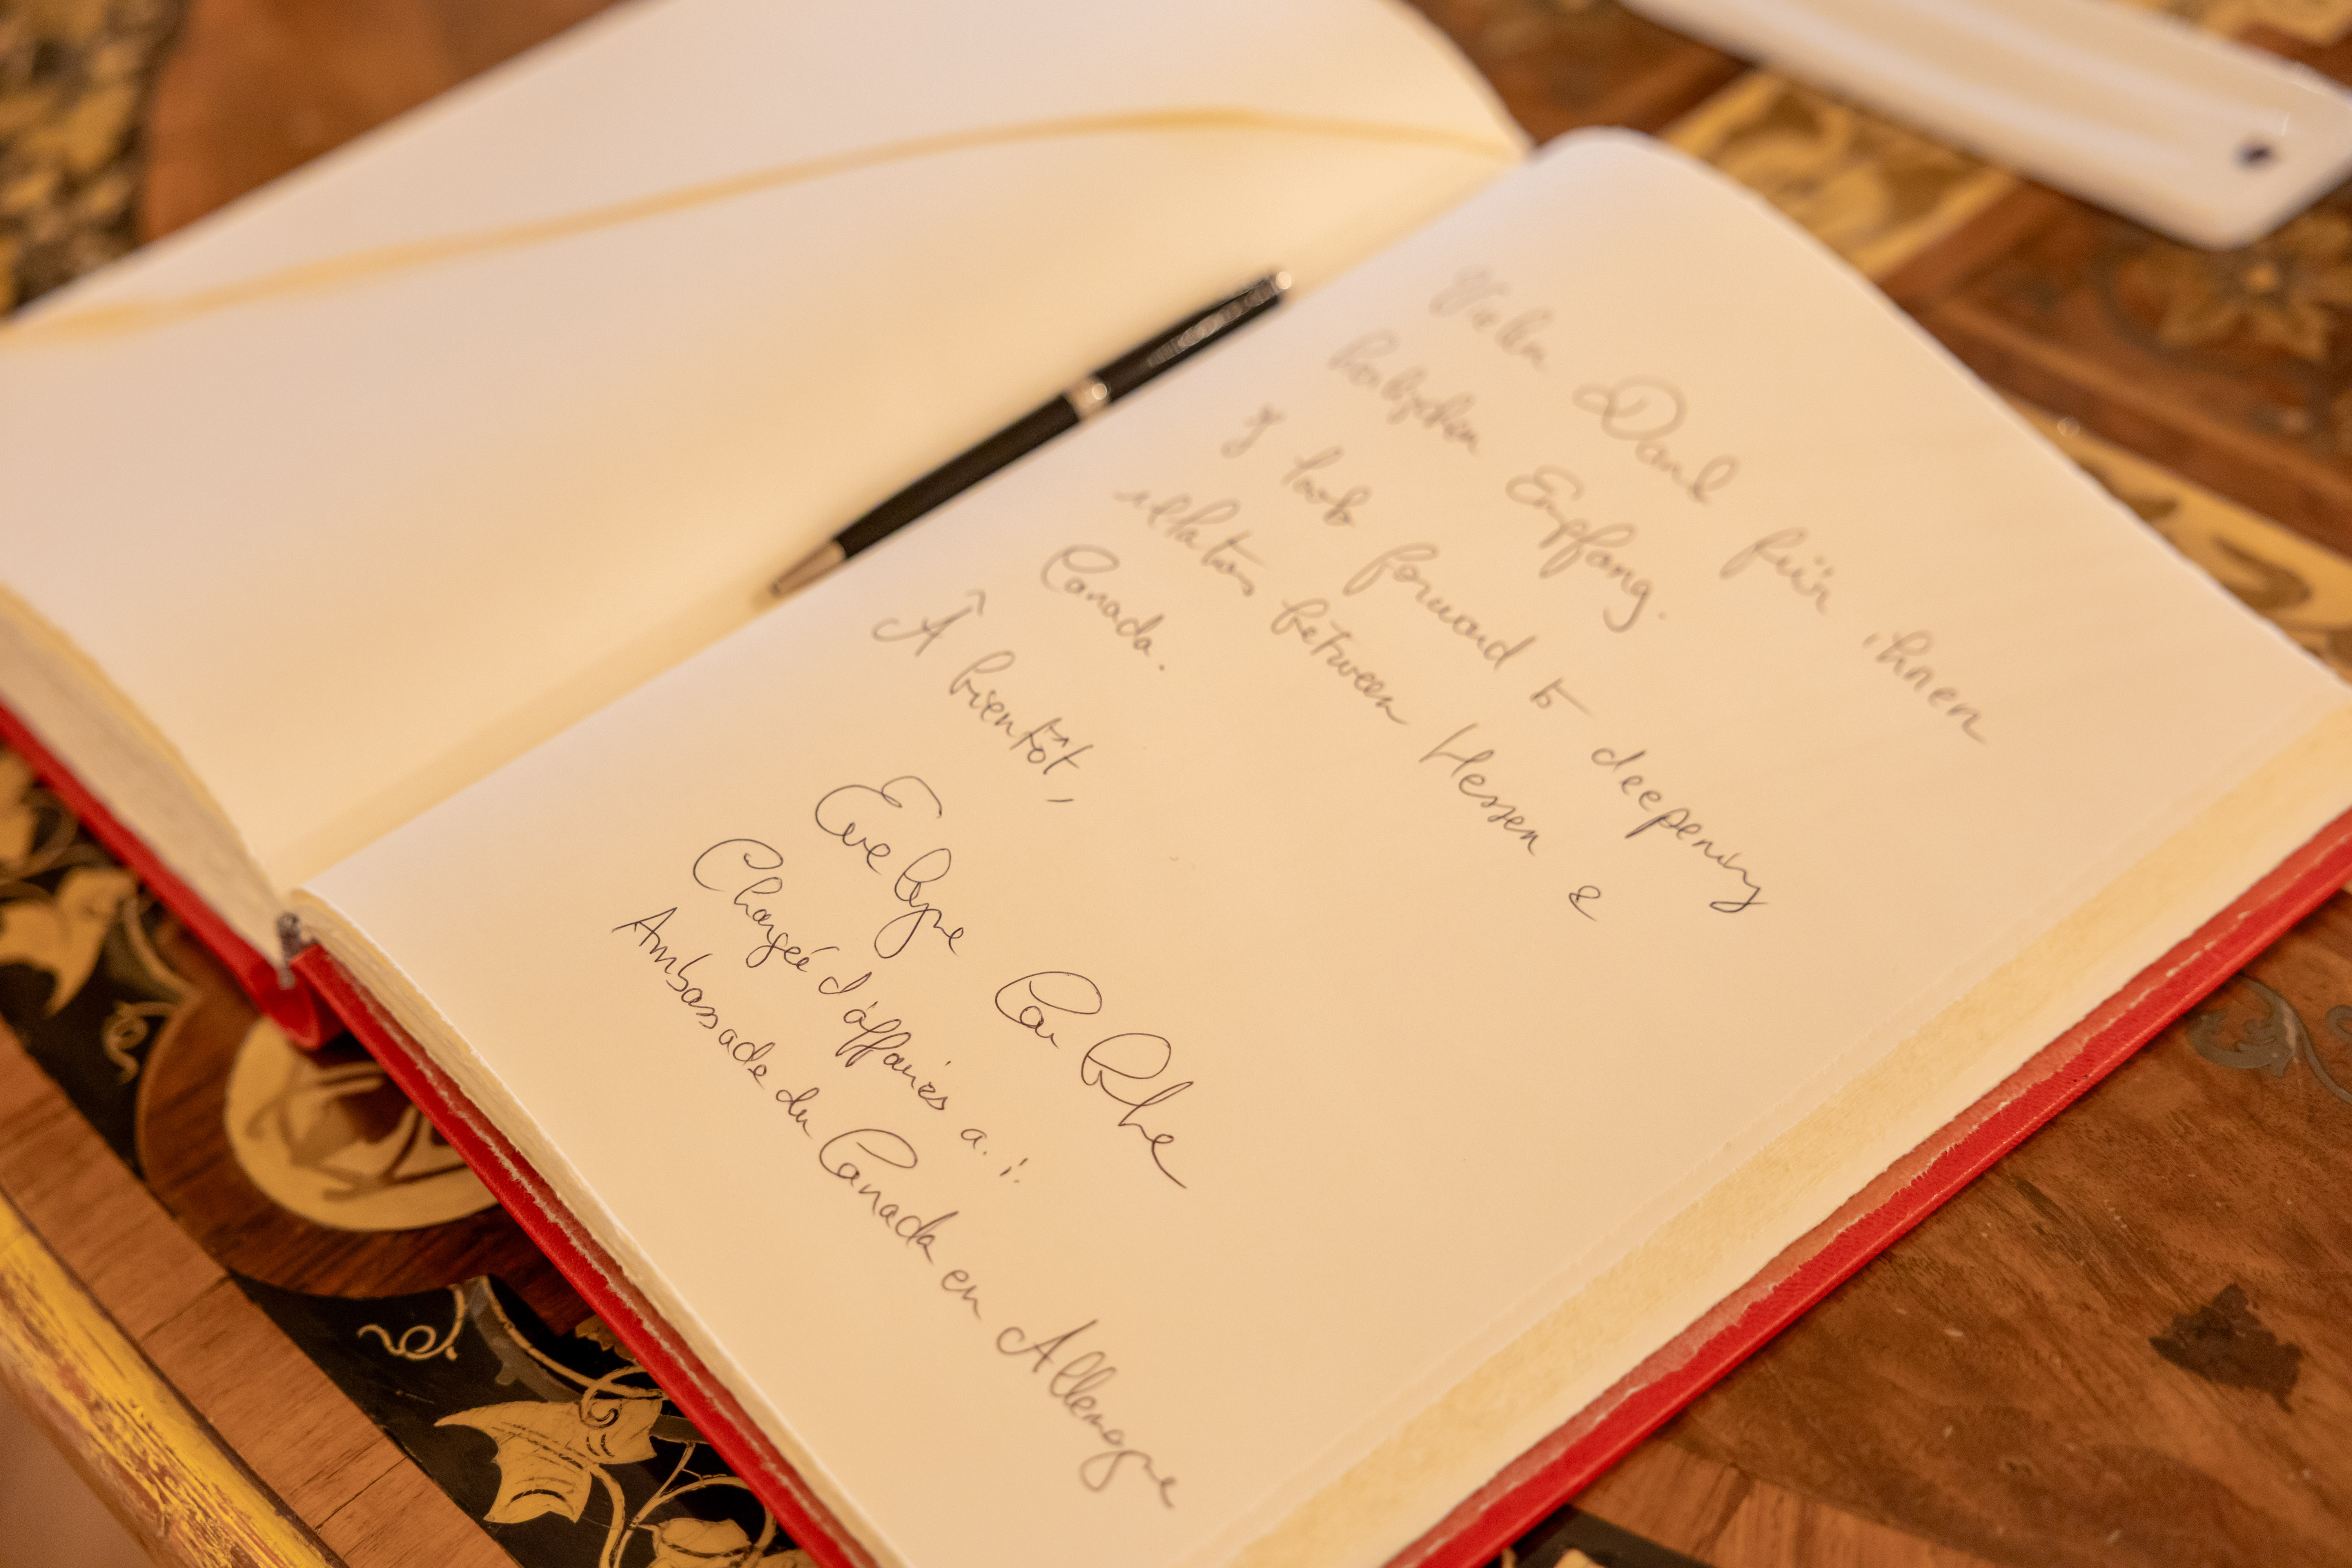 Vielen Dank für ihnen
herlzchen Empfang.
I look forward to deepening
relations between Hessen &
Canada.
À bientôt,
Evelyne Coulombe
Chargée d'affaires a.i.
Ambassade du Canada en Allemagne